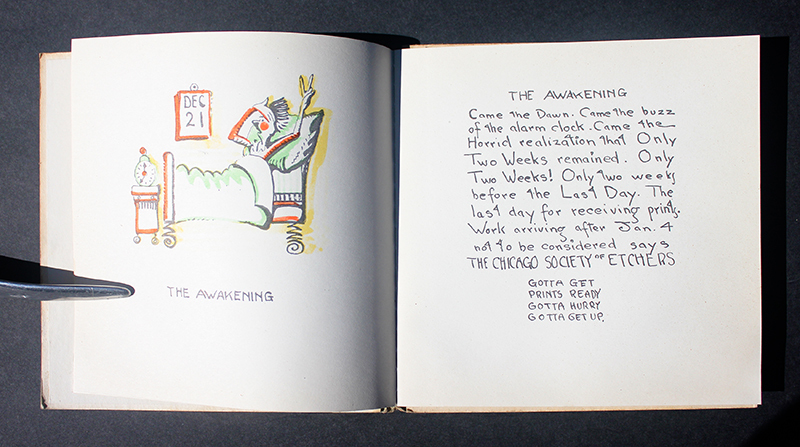 DEC
21
THE AWAKENING
THE AWAKENING
Came the Dawn. Came the buzz
of the alarm clock. Came the
Horrid realization that Only
Two Weeks remained. Only
Two Weeks! Only two weeks
before the Last Day. The
last day for receiving prints.
Work arriving after Jan. 4
not to be considered says
THE CHICAGO SOCIETY OF ETCHERS
GOTTA GET
PRINTS READY
GOTTA HURRY
GOTTA GET UP.